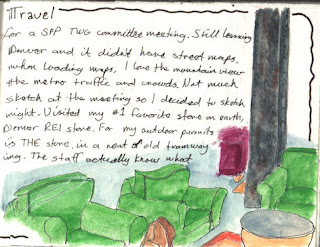 Travel
for a SPP TWG committee meeting. Still learning
Denver and it didn't have street maps
when loading maps. I love the mountain view
the metro traffic and crowds. Not much
sketch at the meeting so I decided to sketch
night. Visited my #1 favorite store on earth,
Denver REI store. For my outdoor pursuits
is THE store, in a neat old tramway
ing. The staff actually know what